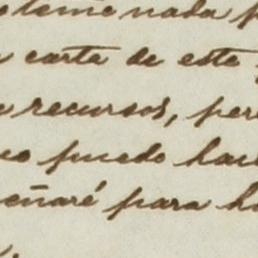 nada
carta de este
recursos, per
puedo hac
eñaré para h